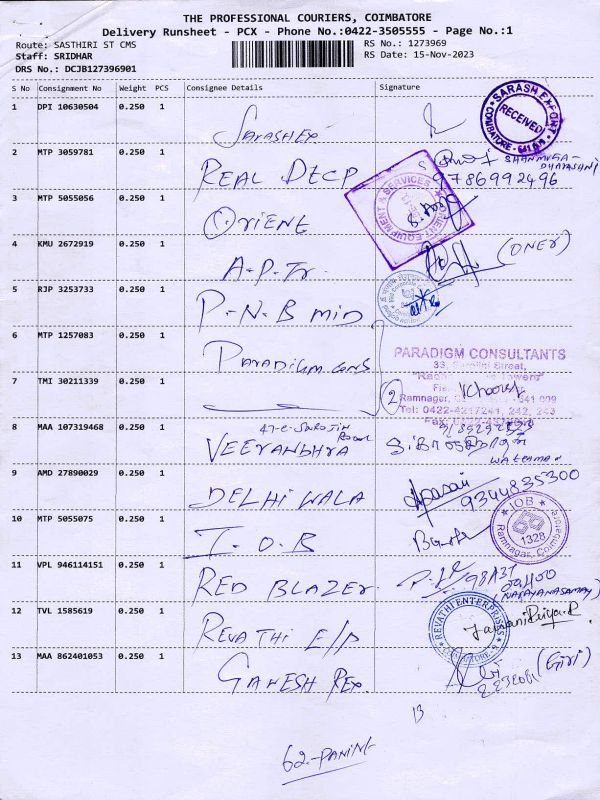 THE PROFESSIONAL COURIERS, COIMBATORE
Delivery Runsheet - PCX - Phone No.:0422-3505555 - Page No.:1
Route: SASTHIRI ST CMS
RS No.: 1273969
Staff: SRIDHAR
RS Date: 15-Nov-2023
DRS No.: DCJB127396901
S No Consignment No Weight PCS Consignee Details Signature
1 DPI 10630504 0.250 1 SARASHEX
SARASH EXPORT RECEIVED COIMBATORE
2 MTP 3059781 0.250 1 REAL DECP
SHANMUGA-
9786992496
3 MTP 5055056 0.250 1 ORIENT
EQUIPMENT & SERVICES
4 KMU 2672919 0.250 1 A.P.Tr.
(ONER)
5 RJP 3253733 0.250 1 P-N-B MID
6 MTP 1257083 0.250 1 PARADIGM CONS
PARADIGM CONSULTANTS
33, Street,
7 TMI 30211339 0.250 1
2
Ramnagar, 641 009
Tel: 0422-4217241, 242, 243
8 MAA 107319468 0.250 1 VEERANDHRA
WATERMAN
9 AMD 27890029 0.250 1 DELHI WALA
9344835300
10 MTP 5055075 0.250 1 I.O.B
IOB 1328 Ramnagar, Coimbatore
11 VPL 946114151 0.250 1 RED BLAZER
(NARAYANASAMY)
12 TVL 1585619 0.250 1 REVATHI E/P
REVATHI ENTERPRISES COIMBATORE
13 MAA 862401053 0.250 1 GANESH REX.
(GIRI)
13